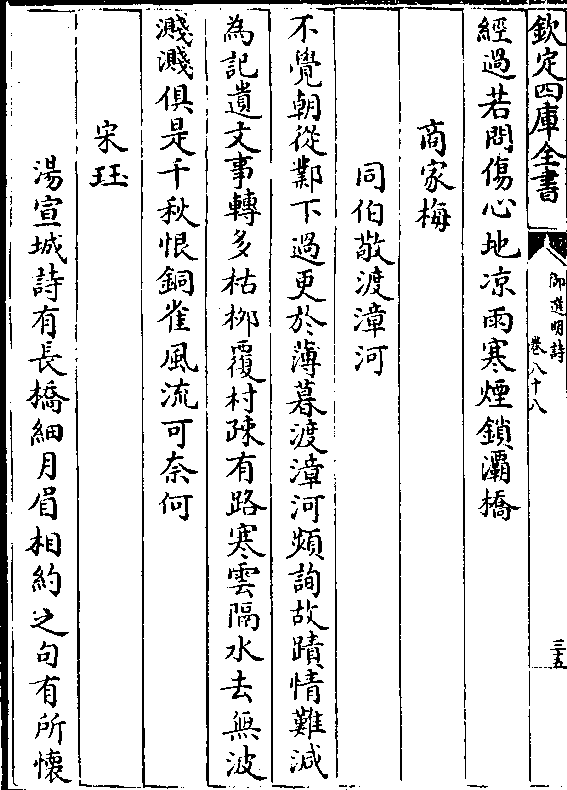 欽定四庫全書
御選明詩
卷八十八
三五
經過若問傷心地凉雨寒煙鎖灞橋
商家梅
同伯敬渡漳河
不覺朝從鄴下過更於薄暮渡漳河頻詢故蹟情難減
為記遺文事轉多枯栁覆村疎有路寒雲隔水去無波
濺濺俱是千秋恨銅雀風流可奈何
宋珏
湯宣城詩有長橋細月眉相約之句有所懷